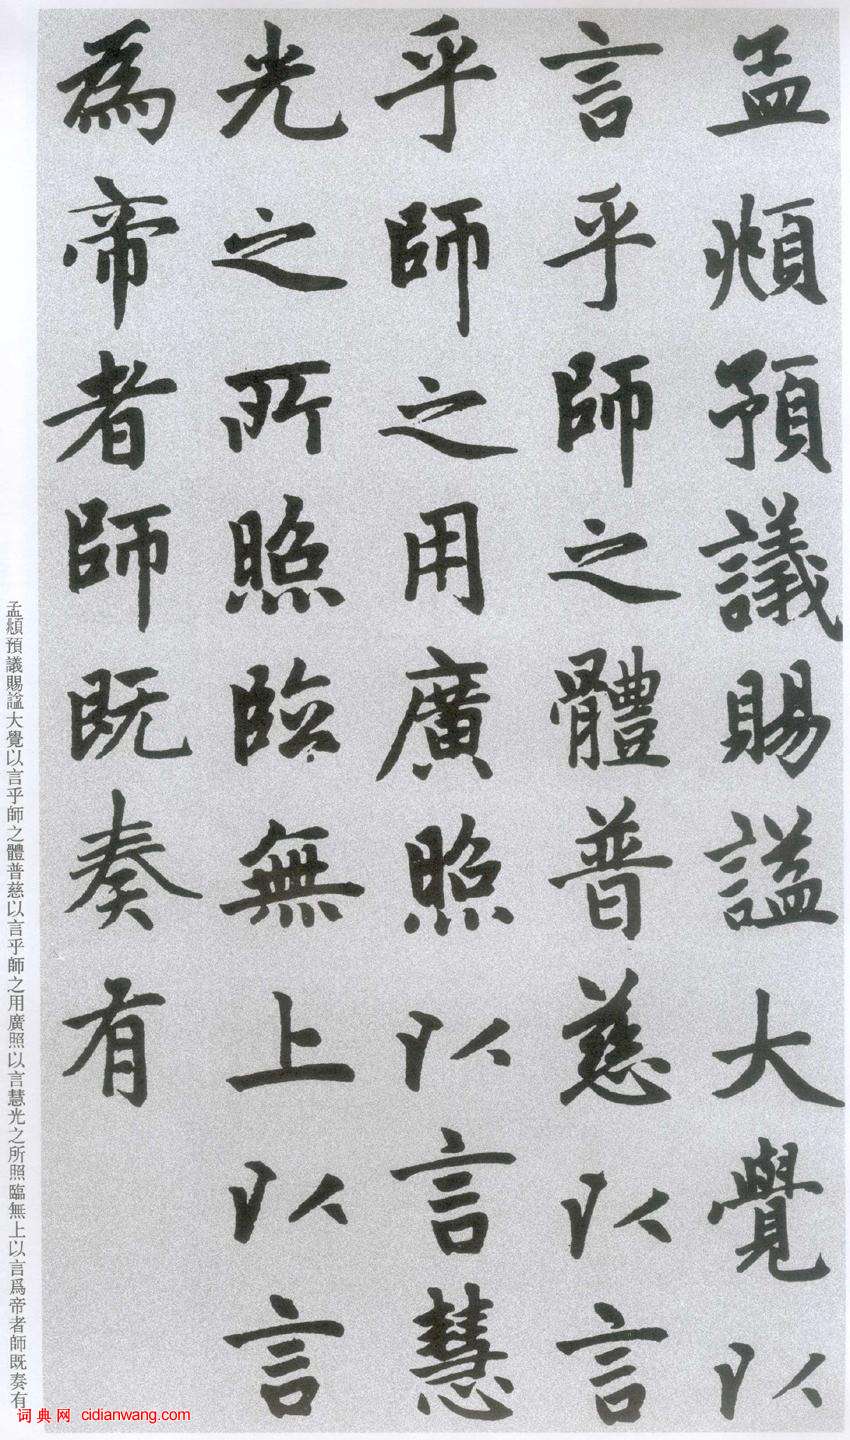 孟頫預議賜謚大覺以
言乎師之體普慈以言
乎師之用廣照以言慧
光之所照臨無上以言
爲帝者師既奏有
孟頫預議賜謚大覺以言乎師之體普慈以言乎師之用廣照以言慧光之所照臨無上以言爲帝者師既奏有
词典网 cidianwang.com